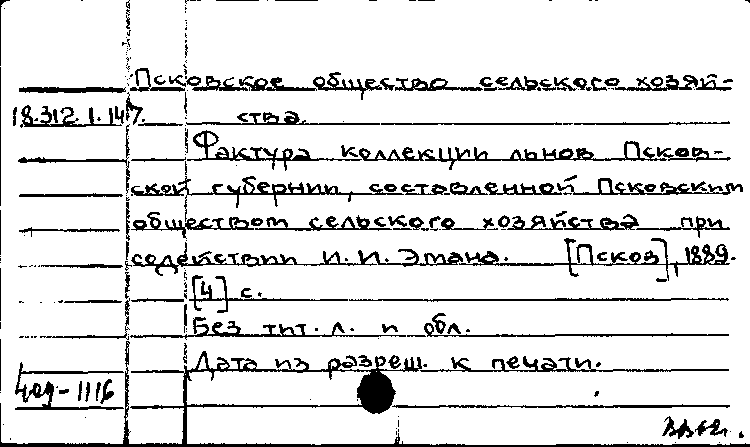 Псковское общество сельского хозяй-
18.312.1.147. ства.
Фактура коллекции льнов Псков-
ской губернии, составленной Псковским
обществом сельского хозяйства при
содействии И.И. Эмана. [Псков], 1889.
[4] с.
Без тит. л. и обл.
Дата из разреш. к печати.